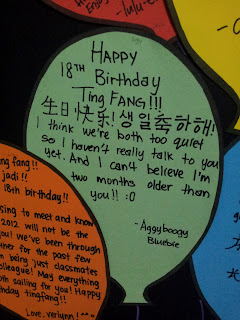 HAPPY
18TH Birthday
Ting FANG!!!
生日快乐! 생일축하해!
I think we're both too quiet
so I haven't really talk to you
yet. And I can't believe I'm
two months older than
you!! :O
- Aggyboogy
Bluebie
ng fang!!
jadi!!
18th birthday!!
sing to meet and know
2012 will not be the
you! We've been through
her for the past few
m being just classmates
lleague! May everything
oth sailing for you! Happy
hday tingfang!!
Love, verlynn! ^^
Enjoy
- lulu